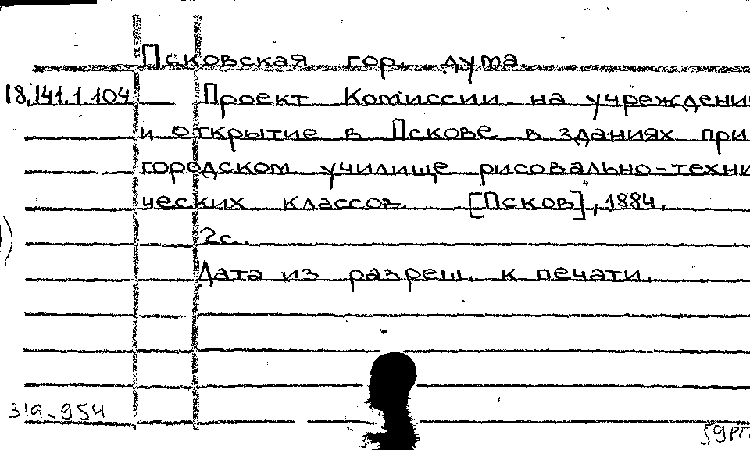 Псковская гор. дума.
18.141.1.104 Проект Комиссии на учреждени
и открытие в Пскове в зданиях при
городском училище рисовально-техни
ческих классов. [Псков], 1884.
2с.
Дата из разреш. к печати.
319-954